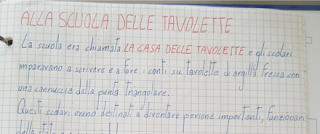 ALLA SCUOLA DELLE TAVOLETTE
La scuola era chiamata LA CASA DELLE TAVOLETTE e gli scolari
imparavano a scrivere e a fare i conti su tavolette di argilla fresca con
una cannuccia dalla punta triangolare.
Questi scolari erano destinati a diventare persone importanti, funzionari